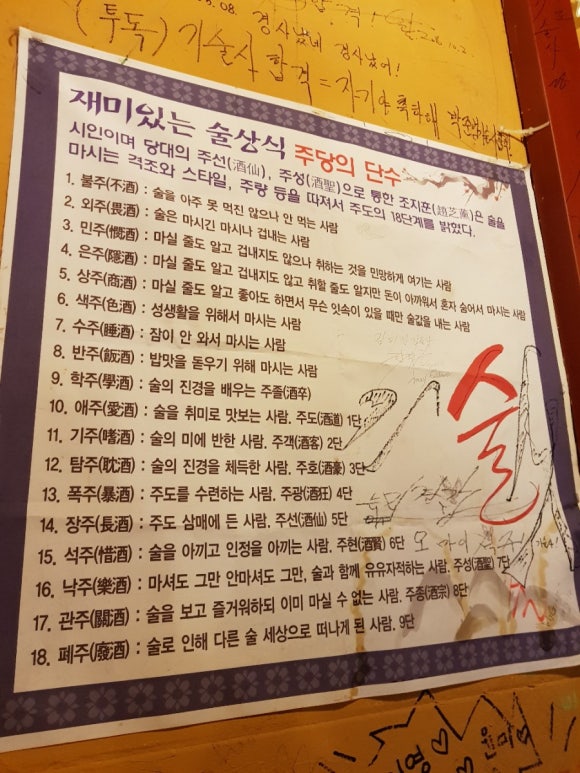 경사났네 경사났어!
(투독) 기술사 합격 = 자기야 축하해
재미있는 술상식 주당의 단수
시인이며 당대의 주선(酒仙), 주성(酒聖)으로 통한 조지훈(趙芝薰)은 술을
마시는 격조와 스타일, 주량 등을 따져서 주도의 18단계를 밝혔다.
1. 불주(不酒) : 술을 아주 못 먹진 않으나 안 먹는 사람
2. 외주(畏酒) : 술은 마시긴 마시나 겁내는 사람
3. 민주(憫酒) : 마실 줄도 알고 겁내지도 않으나 취하는 것을 민망하게 여기는 사람
4. 은주(隱酒) : 마실 줄도 알고 겁내지도 않고 취할 줄도 알지만 돈이 아까워서 혼자 숨어서 마시는 사람
5. 상주(商酒) : 마실 줄도 알고 좋아도 하면서 무슨 잇속이 있을 때만 술값을 내는 사람
6. 색주(色酒) : 성생활을 위해서 마시는 사람
7. 수주(睡酒) : 잠이 안 와서 마시는 사람
8. 반주(飯酒) : 밥맛을 돋우기 위해 마시는 사람
9. 학주(學酒) : 술의 진경을 배우는 주졸(酒卒)
10. 애주(愛酒) : 술을 취미로 맛보는 사람. 주도(酒道) 1단
11. 기주(嗜酒) : 술의 미에 반한 사람. 주객(酒客) 2단
12. 탐주(耽酒) : 술의 진경을 체득한 사람. 주호(酒豪) 3단
13. 폭주(暴酒) : 주도를 수련하는 사람. 주광(酒狂) 4단
14. 장주(長酒) : 주도 삼매에 든 사람. 주선(酒仙) 5단
15. 석주(惜酒) : 술을 아끼고 인정을 아끼는 사람. 주현(酒賢) 6단
16. 낙주(樂酒) : 마셔도 그만 안마셔도 그만, 술과 함께 유유자적하는 사람. 주성(酒聖) 7단
17. 관주(關酒) : 술을 보고 즐거워하되 이미 마실 수 없는 사람. 주종(酒宗) 8단
18. 폐주(廢酒) : 술로 인해 다른 술 세상으로 떠나게 된 사람. 9단
기술사